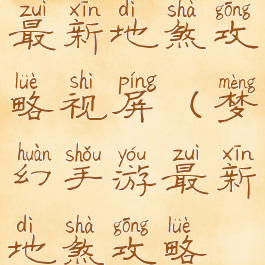 zuì xīn dì shà gōng
最新地煞攻
lüè shì píng mèng
略视屏（梦
huàn shǒu yóu zuì xīn
幻手游最新
dì shà gōng lüè
地煞攻略